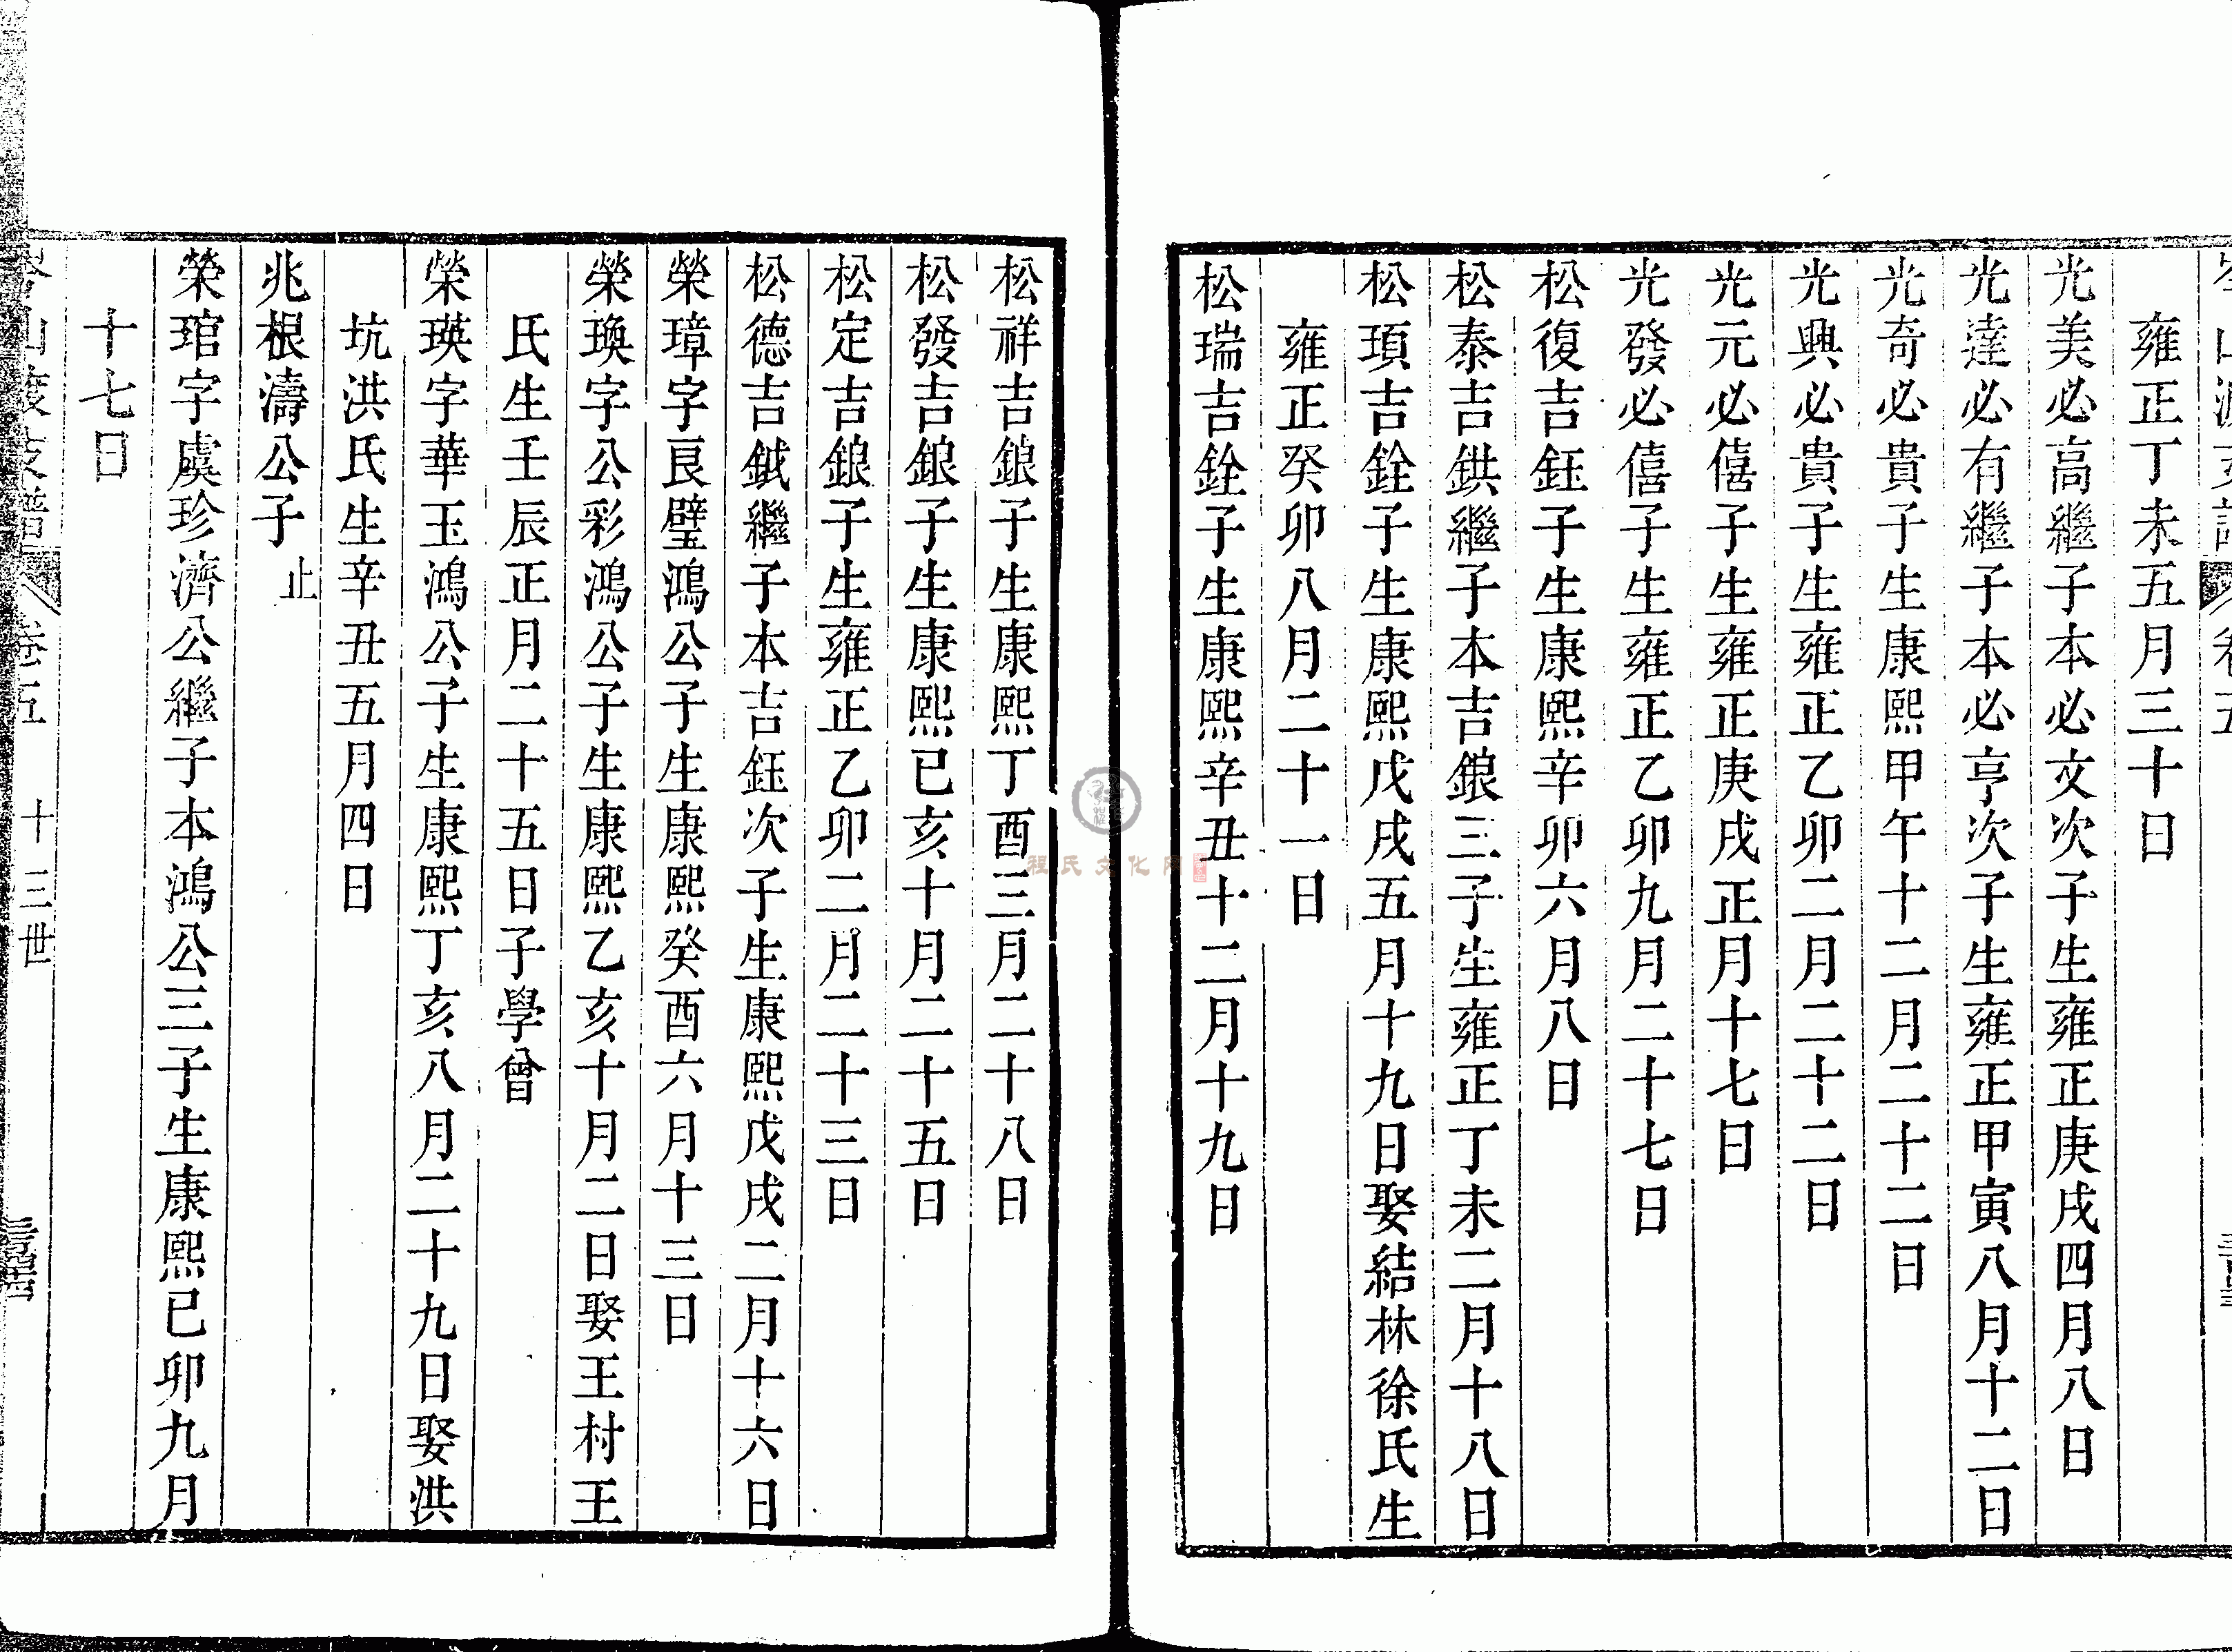 雍正丁未五月三十日
光美必高繼子本必文次子生雍正庚戌四月八日
光達必有繼子本必亨次子生雍正甲寅八月十二日
光奇必貴子生康熙甲午十二月二十二日
光興必貴子生雍正乙卯二月二十二日
光元必僖子生雍正庚戌正月十七日
光發必僖子生雍正乙卯九月二十七日
松復吉鈺子生康熙辛卯六月八日
松泰吉鉷繼子本吉鋃三子生雍正丁未二月十八日
松頊吉銓子生康熙戊戌五月十九日娶結林徐氏生
雍正癸卯八月二十一日
松瑞吉銓子生康熙辛丑十二月十九日
松祥吉鋃子生康熙丁酉三月二十八日
松發吉鋃子生康熙已亥十月二十五日
松定吉鋃子生雍正乙卯二月二十三日
松德吉鉞繼子本吉鈺次子生康熙戊戌二月十六日
榮璋字艮璧鴻公子生康熙癸酉六月十三日
榮瑍字公彩鴻公子生康熙乙亥十月二日娶王村王
氏生壬辰正月二十五日子學曾
榮瑛字華玉鴻公子生康熙丁亥八月二十九日娶洪
坑洪氏生辛丑五月四日
兆根濤公子止
榮琯字虞珍濟公繼子本鴻公三子生康熙已卯九月
十七日
卷五 十三世
程氏文化网